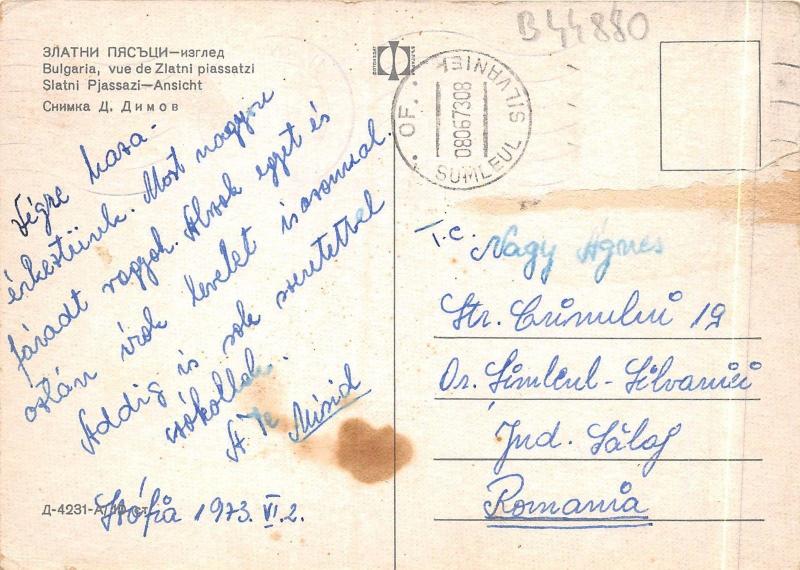 B44880
ЗЛАТНИ ПЯСЪЦИ—изглед
Bulgaria, vue de Zlatni piassatzi
Slatni Pjassazi—Ansicht
Снимка Д. Димов
OF. SUMLEUL SILVANIEI
08067308
Végre haza-
érkeztünk. Most nagyon
fáradt vagyok. Alszok egyet és
oztán írok levelet is azonnal.
Addig is sok szeretettel
csókollak.
A Te Misid
Szófia 1973. VI. 2.
Д-4231-А
T.c. Nagy Ágnes
Str. Crinului 19
Or. Simleul-Silvaniei
Jud. Sălaj
Romania